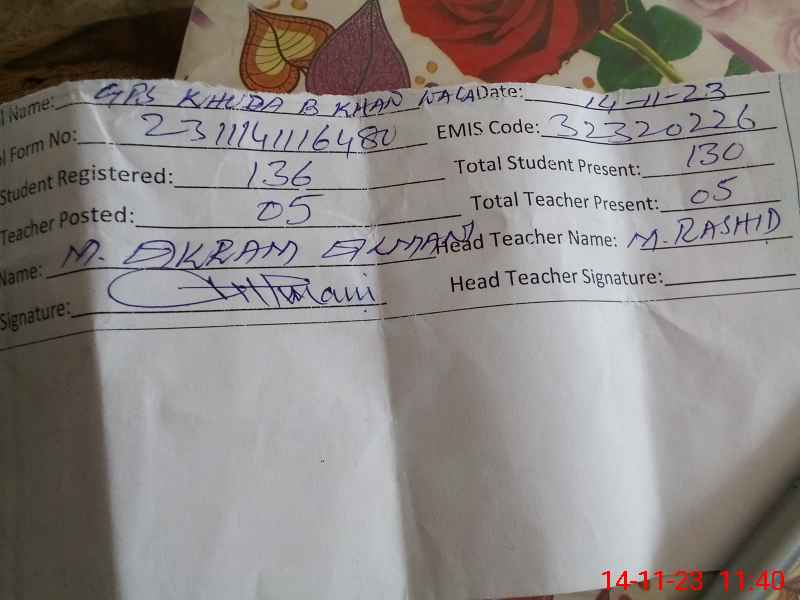 l Name: GPS KHUDA B KHAN NALA Date: 14-11-23
l Form No: 2311141116480 EMIS Code: 32320226
Student Registered: 136 Total Student Present: 130
Teacher Posted: 05 Total Teacher Present: 05
Name: M. AKRAM Head Teacher Name: M. RASHID
Signature: Head Teacher Signature:
14-11-23 11:40